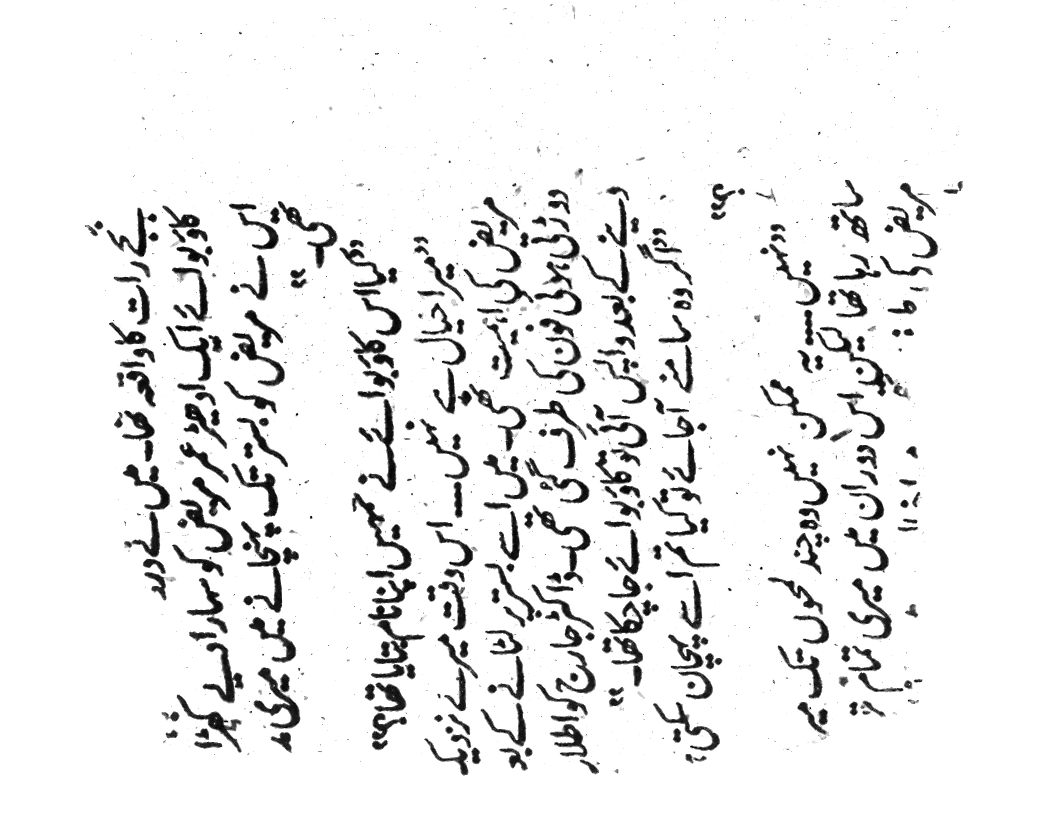 بجے رات کا واقعہ تھا۔ میں نے
کاؤبوائے ایک ادھیڑ عمر مریض کو سہارا دیے کھڑا
اس نے مریض کو بستر تک پہنچانے میں میری مد
تھی۔"
"کیا اس کاؤبوائے نے تمہیں اپنا نام بتایا تھا؟"
"میرا خیال ہے نہیں۔۔۔۔ اس وقت میرے نزدیک
مریض کی اہمیت تھی۔ میں اسے بستر پر لٹانے کے بعد
دوڑتی ہوئی فون کی طرف گئی تھی۔ ڈاکٹر جارج کو اطلاع
دینے کے بعد واپس آئی تو کاؤبوائے جا چکا تھا۔"
"اگر وہ سامنے آجائے تو کیا تم اسے پہچان سکتی
؟"
"نہیں۔۔۔۔ یہ ممکن نہیں وہ چند لمحوں تک میر
ساتھ رہا تھا لیکن اس دوران میں میری تمام تر
مریض کی